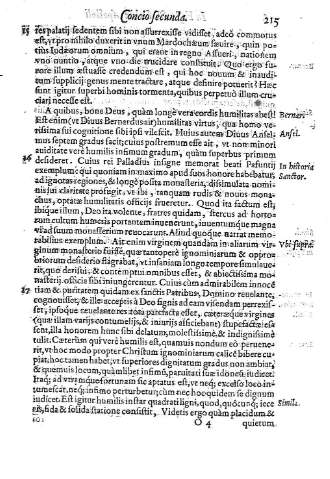 Concio secunda.
215
res palatij sedentem sibi non assurrexisse vidisset, adeò commotus
est, vt pro nihilo duxerit in vnum Mardochæum sæuire, quin po-
tius Iudæorum omnium, qui erant in regno Assueri, nationem
vno nutu, atque vno die trucidare constituit. Quo ergo fu-
rore illum æstuasse credendum est, qui hoc nouum & inaudi-
tum supplicij genus tractare, atque definire potuerit? Hæc
sunt igitur superbi hominis tormenta, quibus perpetuò illum cru-
ciari necesse est.
A quibus, bone Deus, quàm longè vera cordis humilitas abest!
Est enim (vt Diuus Bernardus ait) humilitas virtus, qua homo ve-
rissima sui cognitione sibi ipsi vilescit. Huius autem Diuus Ansel-
mus septem gradus facit; cuius postremum esse ait, vt non minori
auiditate verè humilis infimum gradum, quàm superbus primum
desideret. Cuius rei Palladius insigne memorat beati
exemplum: qui quoniam in maximo apud suos honore habebatur,
ad ignotas regiones, & longè posita monasteria, dissimulata nomi-
nis sui claritate profugit, vt ibi, tanquam rudis & nouus mona-
chus, optatæ humilitatis officijs frueretur. Quod ita factum est,
ibique illum, Deo ita volente, fratres quidam, stercus ad horto-
rum cultum humeris portantem inuenerunt, inuentumque magna
vi ad suum monasterium reuocarunt. Aliud quoque narrat memo-
rabilius exemplum. Ait enim virginem quandam in aliarum vir-
ginum monasterio fuisse, quæ tantopere ignominiarum & oppro-
briorum desiderio flagrabat, vt insaniam longo tempore simulaue-
rit, quo derisui, & contemptui omnibus esset, & abiectissima mo-
nasterij officia sibi iniungerentur. Cuius cùm admirabilem innocê
tiam & puritatem quidam ex sanctis Patribus, Domino reuelante,
cognouisset, & ille acceptis à Deo signis ad eam visendam perrexis-
set, ipsoque reuelante res nota parefacta esset, cæteræque virgines
(quæ illam varijs contumelijs, & iniurijs afficiebant) stupefactæ es-
sent, illa honorem hunc sibi delatum, molestissimè, & indignissimè
tulit. Cæterùm qui verè humilis est, quamuis nondum eò peruene-
rit, vt hoc modo propter Christum ignominiarum calicê bibere cu-
piat, hoc tamen habet, vt superiores dignitatum gradus non ambiat,
& quemuis locum, quàmlibet infimũ, paruitati suæ idoneũ iudicet.
Itaq; ad vtranque fortunam sic aptatus est, vt neq; excelso loco in-
tumescat, neq; infimo perturbetur: cùm nec hoc quidem se dignum
iudicet. Est igitur humilis instar quadrati ligni, quod, quocunq; iece
ris, fida & solida statione consistit. Videtis ergo quàm placidum &
O 4
quietum.
Bernard.
Ansel.
In historia
Sanctor.
Vbi suprà.
Simile.